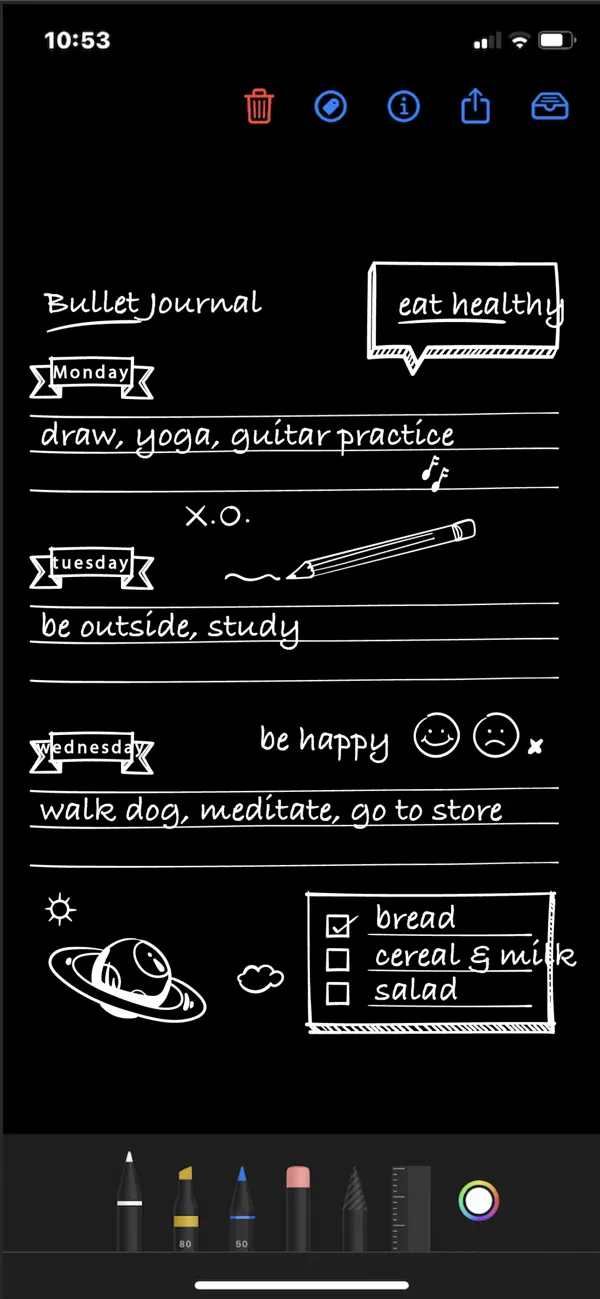 10:53
Bullet Journal
eat healthy
Monday
draw, yoga, guitar practice
X.O.
tuesday
be outside, study
be happy
wednesday
walk dog, meditate, go to store
bread
cereal & milk
salad
80
50